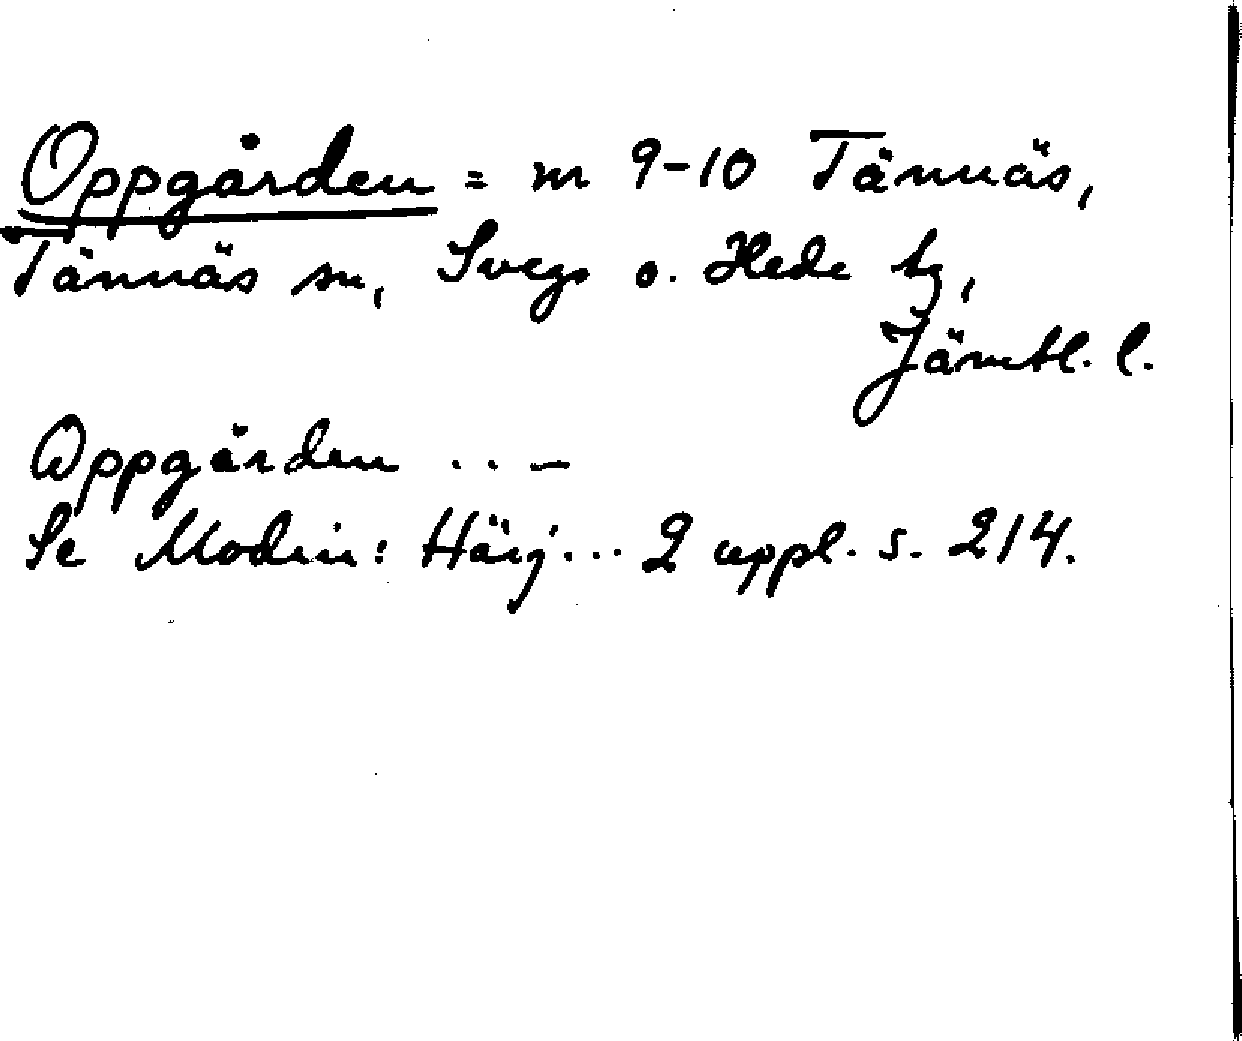 Oppgården = nr 9-10 Tännäs,
Tännäs sn, Svegs o. Hede tg,
Jämtl. l.
Oppgården . . –
Se Modin: Härj... 2 uppl. s. 214.